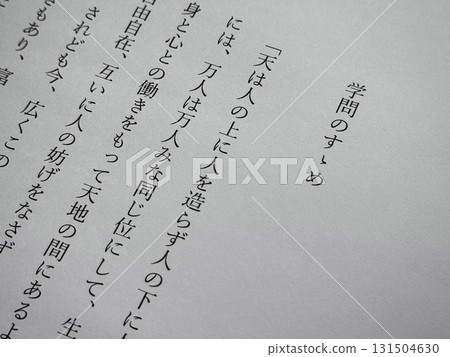 学問のすゝめ
「天は人の上に人を造らず人の下に
には、万人は万人みな同じ位にして、生
身と心との働きをもって天地の間にあるよ
自由自在、互いに人の妨げをなさず
されども今、広くこの
もあり、富
123RF
131504630